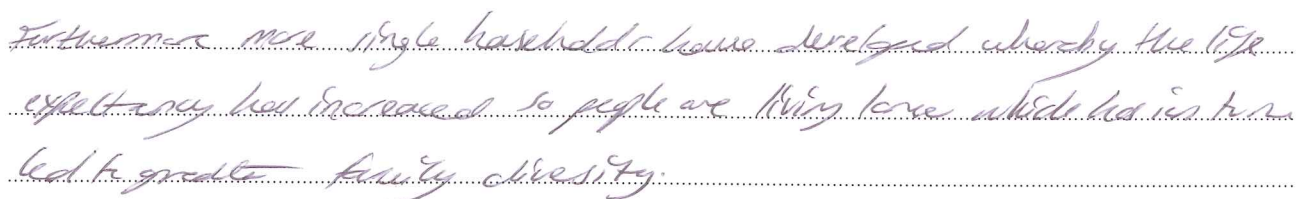 Furthermore more single households have developed whereby the life
expectancy has increased so people are living longer which has in turn
led to greater family diversity.